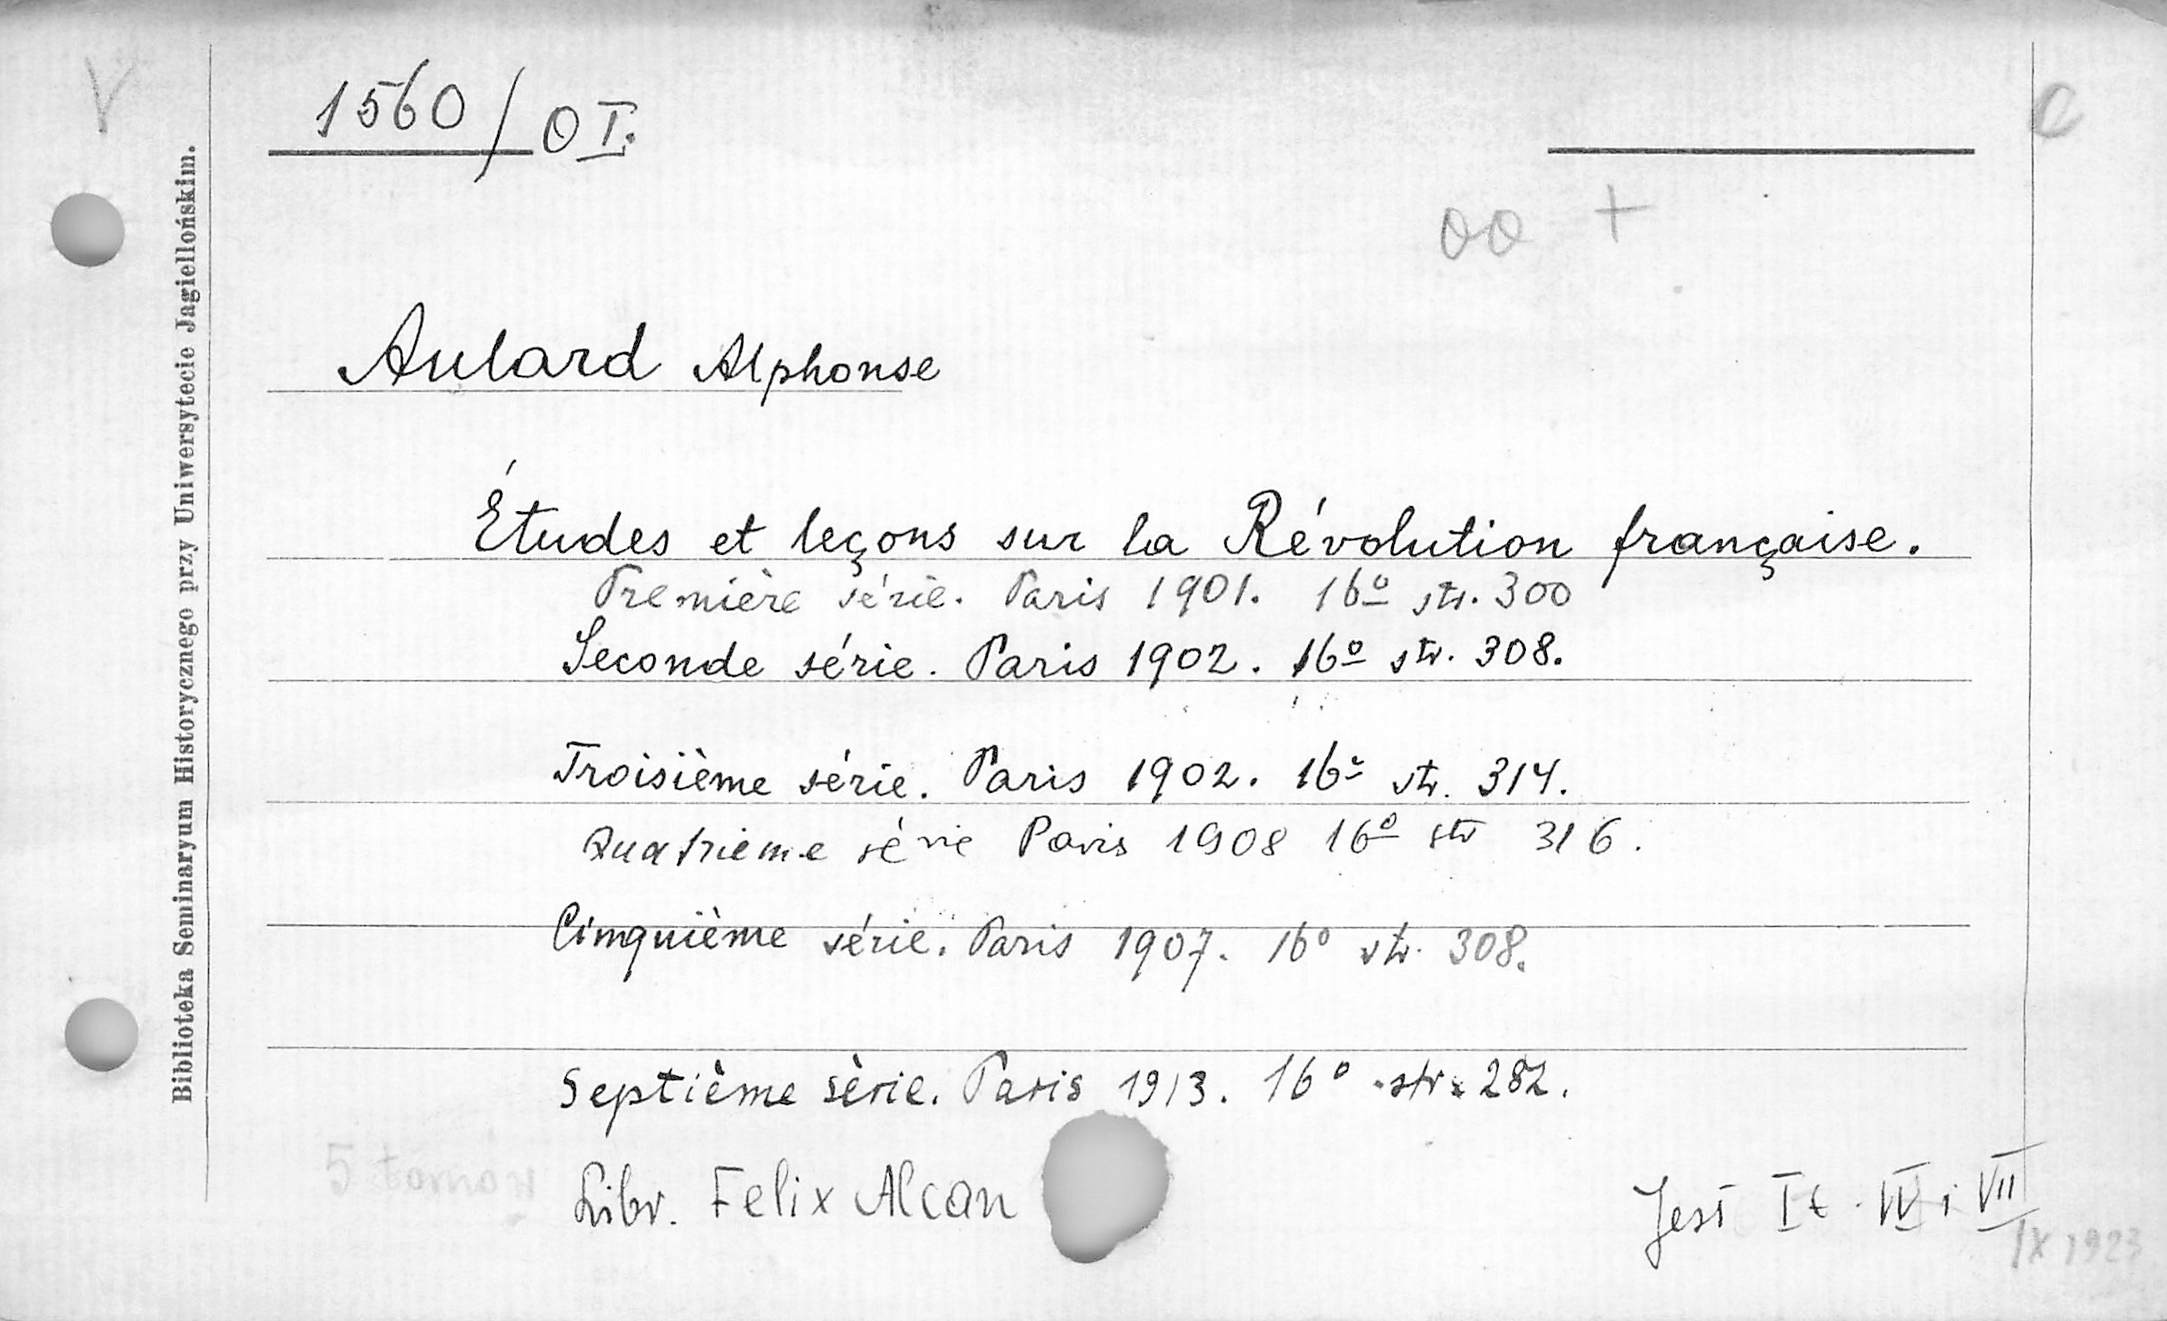 V
1560/OI.
C
oo +
Aulard Alphonse
Études et leçons sur la Révolution française.
Première série. Paris 1901. 16º str. 300
Seconde série. Paris 1902. 16º str. 308.
Troisième série. Paris 1902. 16º str. 314.
Quatrieme série Paris 1908 16º str 316.
Cinquième série. Paris 1907. 16º str. 308.
Septième sèrie. Paris 1913. 16º str. 282.
5 tomów
Libr. Felix Alcan
Jest I t. IV i VII
IX 1923
Biblioteka Seminaryum Historycznego przy Uniwersytecie Jagiellońskim.